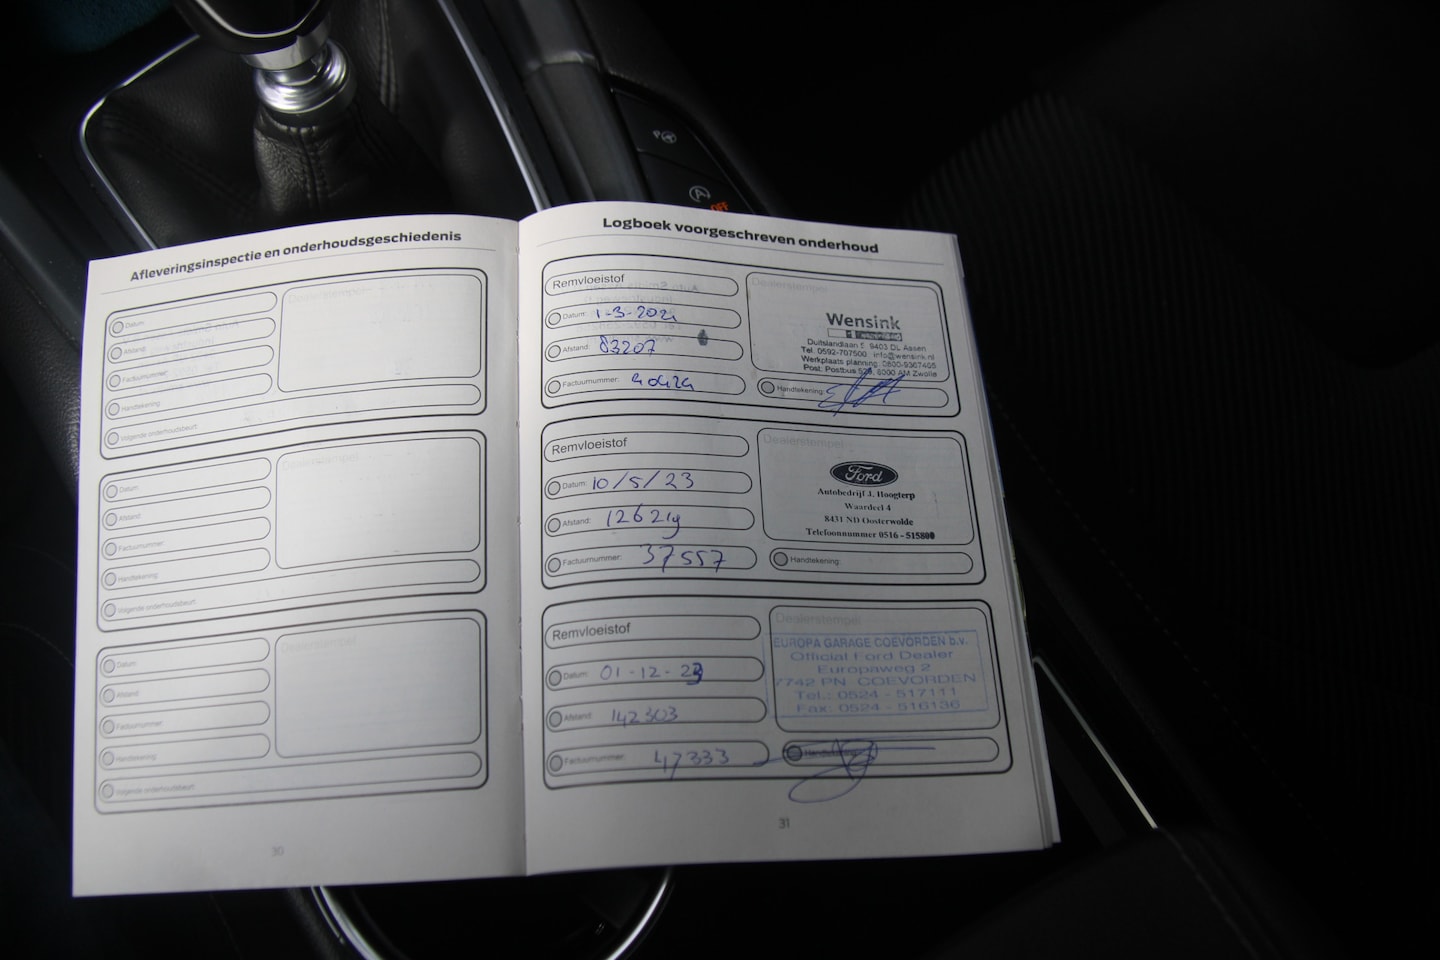 OFF
Afleveringsinspectie en onderhoudsgeschiedenis
Datum:
Dealerstempel
Afstand:
Factuurnummer:
Handtekening:
Volgende onderhoudsbeurt:
Datum:
Dealerstempel
Afstand:
Factuurnummer:
Handtekening:
Volgende onderhoudsbeurt:
Datum:
Dealerstempel
Afstand:
Factuurnummer:
Handtekening:
Volgende onderhoudsbeurt:
30
Logboek voorgeschreven onderhoud
Remvloeistof
Datum: 1-3-2021
Afstand: 83207
Factuurnummer:
Dealerstempel
Wensink
Duitslandlaan 5, 9403 DL Assen
Tel. 0592-707500 info@wensink.nl
Werkplaats planning: 0800-9367465
Post: Postbus 529, 8000 AM Zwolle
Handtekening:
Remvloeistof
Datum: 10/5/23
Afstand: 126219
Factuurnummer: 37557
Dealerstempel
Ford
Autobedrijf J. Hoogterp
Waardeel 4
8431 ND Oosterwolde
Telefoonnummer 0516 - 515800
Handtekening:
Remvloeistof
Datum: 01-12-23
Afstand: 142303
Factuurnummer: 47333
Dealerstempel
EUROPA GARAGE COEVORDEN b.v.
Official Ford Dealer
Europaweg 2
7742 PN COEVORDEN
Tel.: 0524 - 517111
Fax: 0524 - 516136
Handtekening:
31